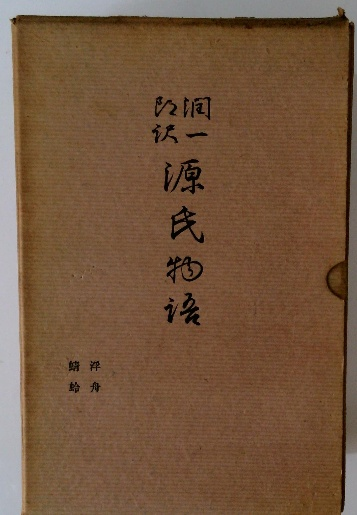 潤一
郎訳
源氏物語
浮舟
蜻蛉